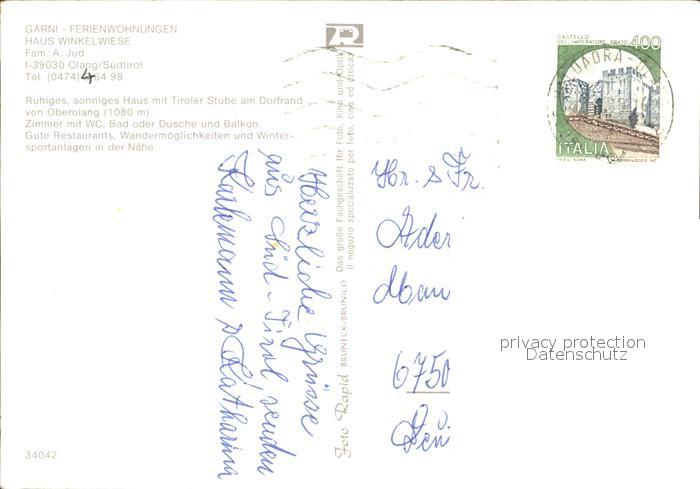 GARNI - FERIENWOHNUNGEN
HAUS WINKELWIESE
Fam. A. Jud
I-39030 Olang/Südtirol
Tel. (0474) 4 64 98
Ruhiges, sonniges Haus mit Tiroler Stube am Dorfrand
von Oberolang (1080 m)
Zimmer mit WC, Bad oder Dusche und Balkon.
Gute Restaurants, Wandermöglichkeiten und Winter-
sportanlagen in der Nähe.
34042
Herzliche Grüsse
aus Süd-Tirol senden
Katharina
Foto Rapid BRUNECK/BRUNICO
Das große Fachgeschäft für Foto, Kino und Optik
Il negozio specializzato per foto, cine ed ottica
R
CASTELLO
DELL'IMPERATORE PRATO 400
ITALIA
I.P.Z.S. ROMA
Hr. & Fr.
6750
privacy protection
Datenschutz